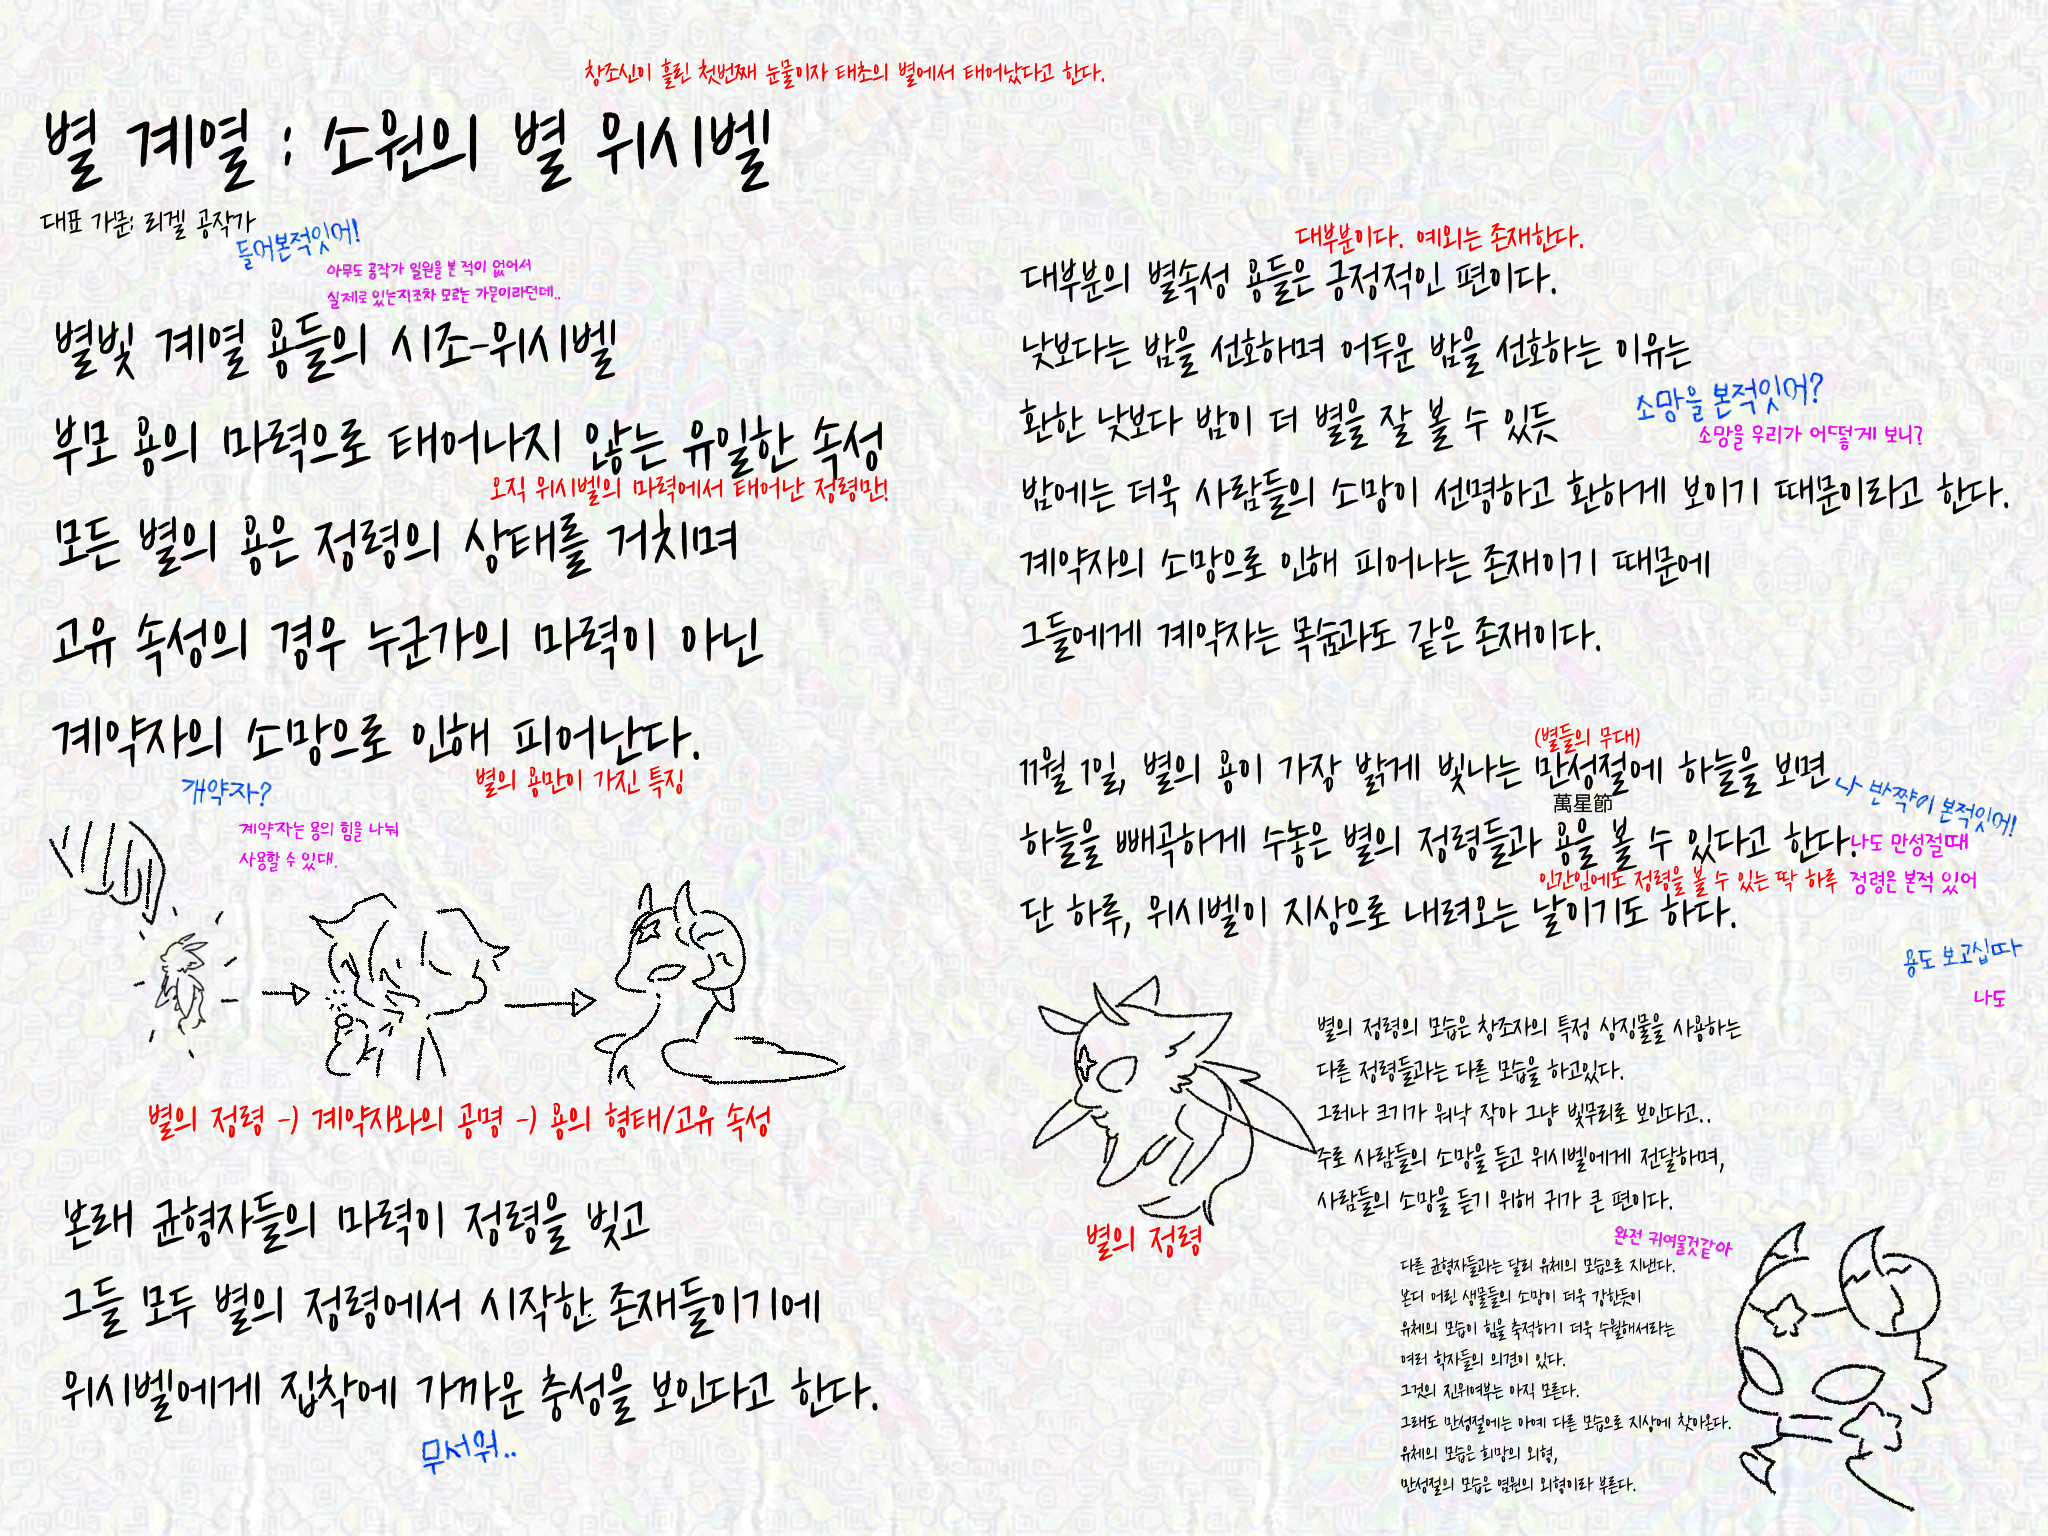 창조신이 흘린 첫번째 눈물이자 태초의 별에서 태어났다고 한다.
별 계열 : 소원의 별 위시벨
대표 가문: 리겔 공작가
들어본적잇어!
아무도 공작가 일원을 본 적이 없어서
실제로 있는지조차 모르는 가문이라던데..
별빛 계열 용들의 시조-위시벨
부모 용의 마력으로 태어나지 않는 유일한 속성
오직 위시벨의 마력에서 태어난 정령만!
모든 별의 용은 정령의 상태를 거치며
고유 속성의 경우 누군가의 마력이 아닌
계약자의 소망으로 인해 피어난다.
별의 용만이 가진 특징
개약자?
계약자는 용의 힘을 나눠
사용할 수 있대.
별의 정령 -> 계약자와의 공명 -> 용의 형태/고유 속성
본래 균형자들의 마력이 정령을 빚고
그들 모두 별의 정령에서 시작한 존재들이기에
위시벨에게 집착에 가까운 충성을 보인다고 한다.
무서워..
대부분이다. 예외는 존재한다.
대부분의 별속성 용들은 긍정적인 편이다.
낮보다는 밤을 선호하며 어두운 밤을 선호하는 이유는
환한 낮보다 밤이 더 별을 잘 볼 수 있듯
소망을 본적잇어?
소망을 우리가 어떻게 보니?
밤에는 더욱 사람들의 소망이 선명하고 환하게 보이기 때문이라고 한다.
계약자의 소망으로 인해 피어나는 존재이기 때문에
그들에게 계약자는 목숨과도 같은 존재이다.
(별들의 무대)
11월 1일, 별의 용이 가장 밝게 빛나는 만성절에 하늘을 보면
萬星節
나 반쨕이 본적잇어!
하늘을 빼곡하게 수놓은 별의 정령들과 용을 볼 수 있다고 한다.
나도 만성절때
정령은 본적 있어
인간임에도 정령을 볼 수 있는 딱 하루
단 하루, 위시벨이 지상으로 내려오는 날이기도 하다.
용도 보고십따
나도
별의 정령의 모습은 창조자의 특정 상징물을 사용하는
다른 정령들과는 다른 모습을 하고있다.
그러나 크기가 워낙 작아 그냥 빛무리로 보인다고..
주로 사람들의 소망을 듣고 위시벨에게 전달하며,
사람들의 소망을 듣기 위해 귀가 큰 편이다.
별의 정령
완전 귀여울것같아
다른 균형자들과는 달리 유체의 모습으로 지낸다.
본디 어린 생물들의 소망이 더욱 강한듯이
유체의 모습이 힘을 축적하기 더욱 수월해서라는
여러 학자들의 의견이 있다.
그것의 진위여부는 아직 모른다.
그래도 만성절에는 아예 다른 모습으로 지상에 찾아온다.
유체의 모습은 희망의 외형,
만성절의 모습은 염원의 외형이라 부른다.